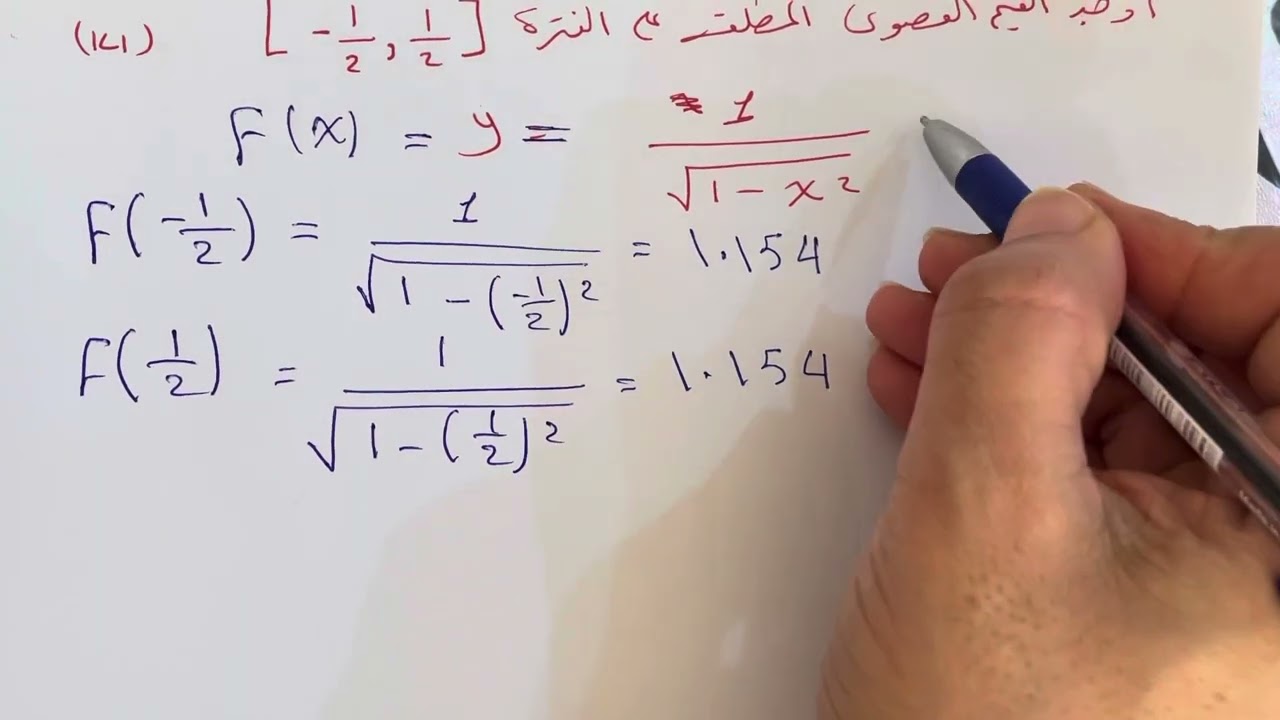 أوجد القيم القصوى المطلقة على الفترة [-1/2, 1/2] (141)
F(x) = y = 1/√(1 - x²)
F(-1/2) = 1/√(1 - (-1/2)²) = 1.154
F(1/2) = 1/√(1 - (1/2)²) = 1.154